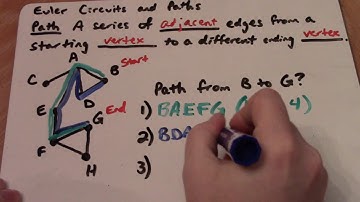 Euler Circuits and Paths
Path A series of adjacent edges from a
starting vertex to a different ending vertex.
A
B Start
C
D
Path from B to G?
E
G End
1) BAEFG ( 4)
2) BDA
F
3)
H